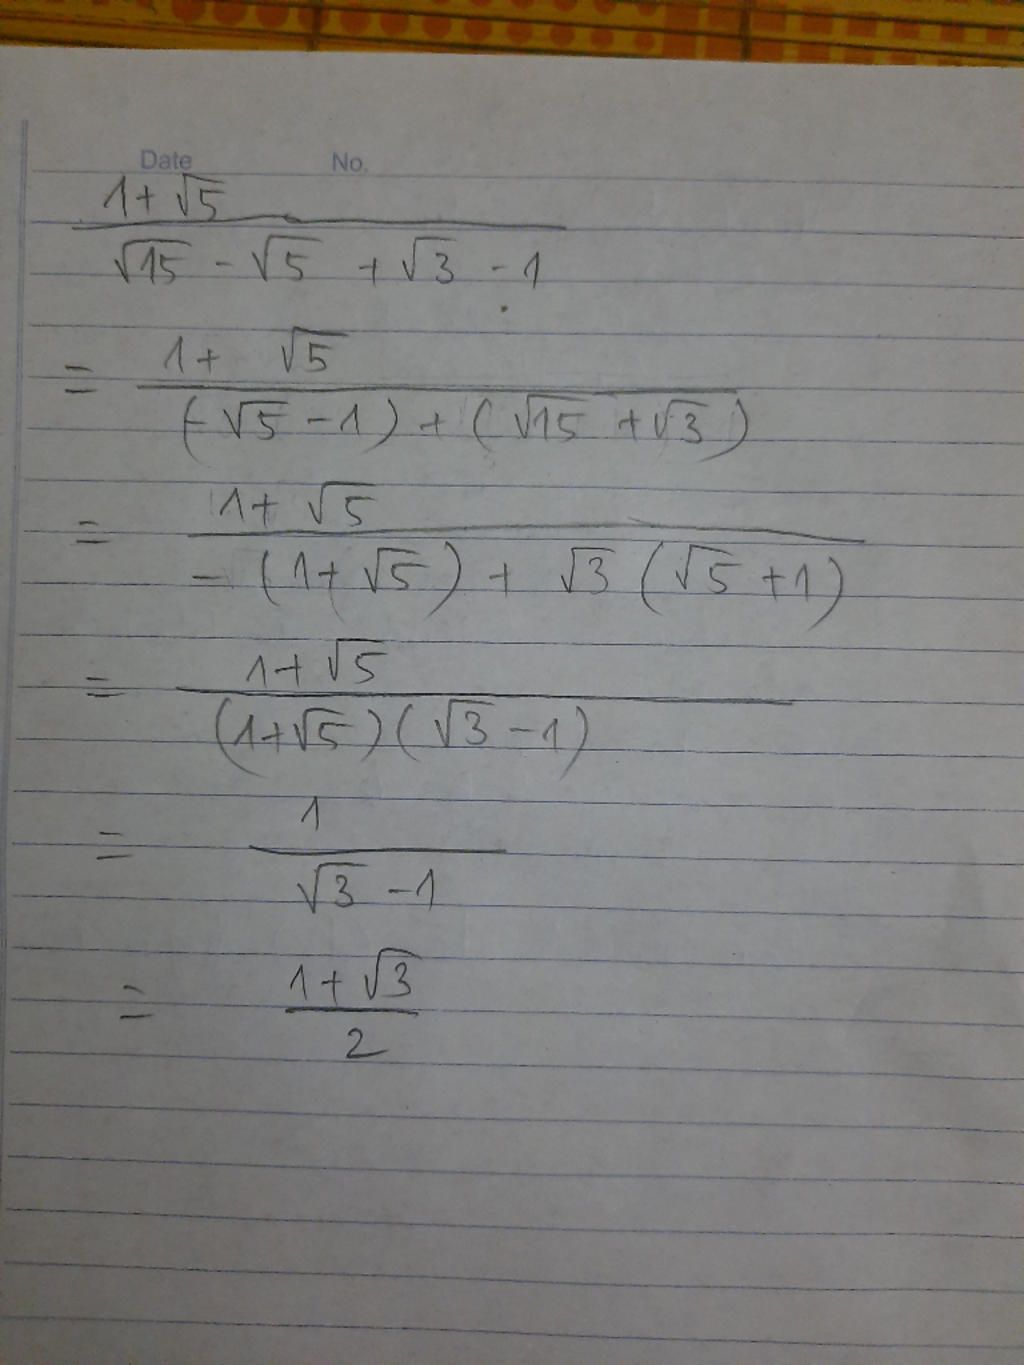 Date No.
1+√5
√15 - √5 + √3 - 1
= 1+ √5
(-√5 - 1) + (√15 + √3)
= 1+ √5
- (1+√5) + √3 (√5 + 1)
= 1+√5
(1+√5) (√3 - 1)
= 1
√3 - 1
= 1+√3
2